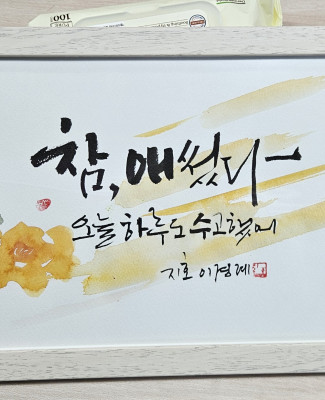 참, 애썼다
오늘 하루도 수고했어
지호 이경례